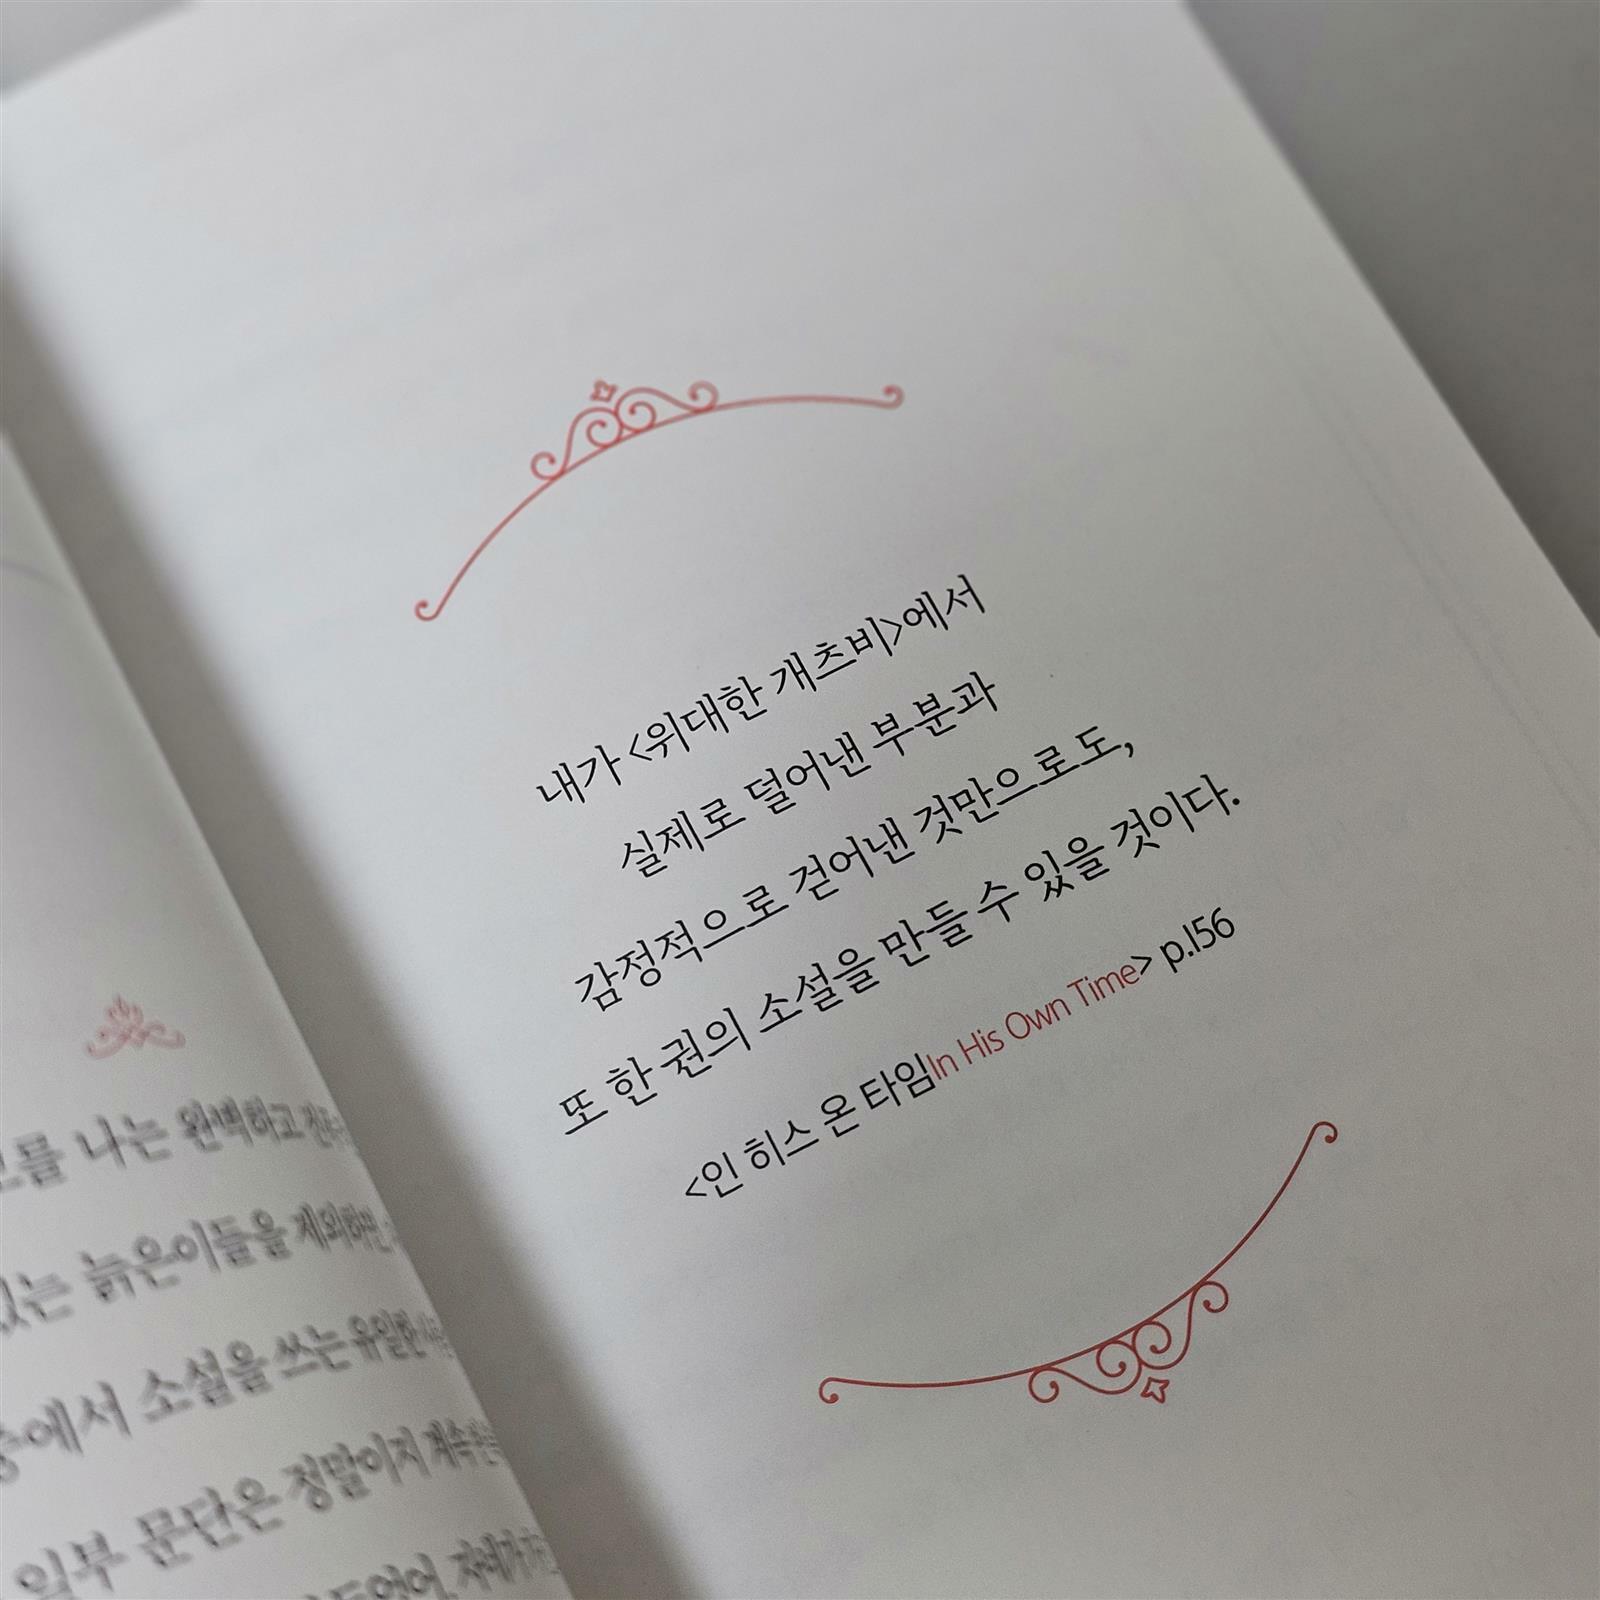 내가 <위대한 개츠비>에서
실제로 덜어낸 부분과
감정적으로 걷어낸 것만으로도,
또 한 권의 소설을 만들 수 있을 것이다.
<인 히스 온 타임In His Own Time> p.156
나는 완벽하고
있는 늙은이들을 제외하면
중에서 소설을 쓰는 유일한
일부 문단은 정말이지 계속